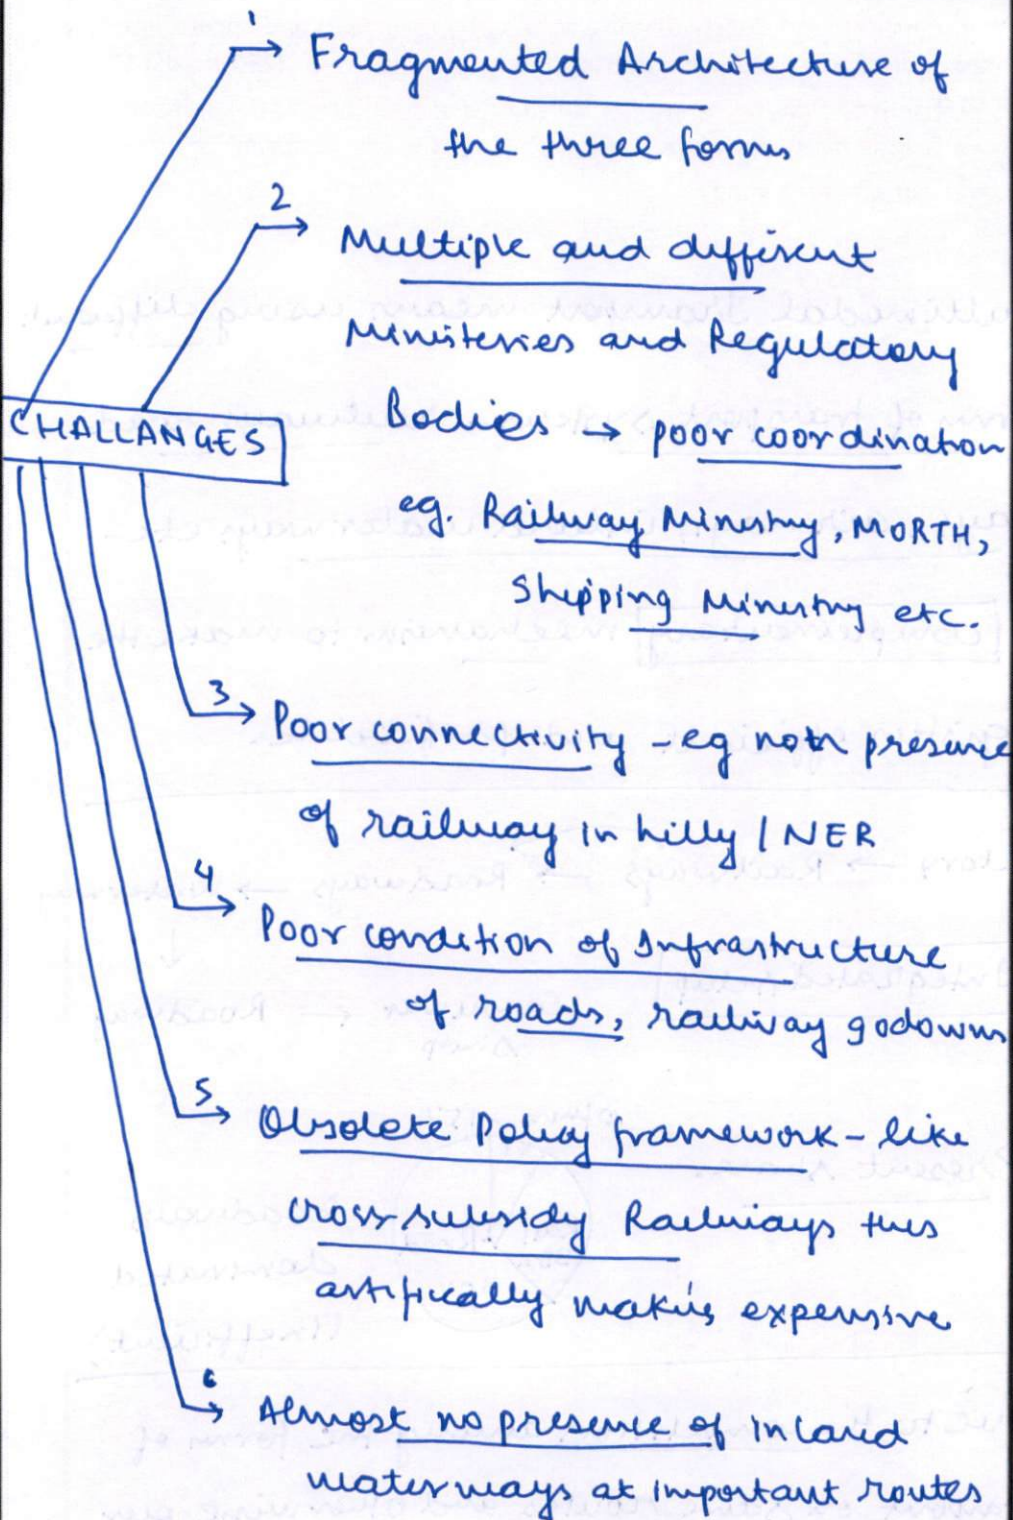 1
Fragmented Architecture of
the three forms
2
Multiple and different
Ministeries and Regulatory
CHALLANGES
Bodies → poor coordination
eg. Railway Ministry, MORTH,
Shipping Ministry etc.
3
Poor connectivity - eg not presence
of railway in hilly / NER
4
Poor condition of Infrastructure
of roads, railway godowns
5
Obsolete Policy framework - like
cross subsidy Railways thus
artifically making expensive
6
Almost no presence of inland
waterways at important routes